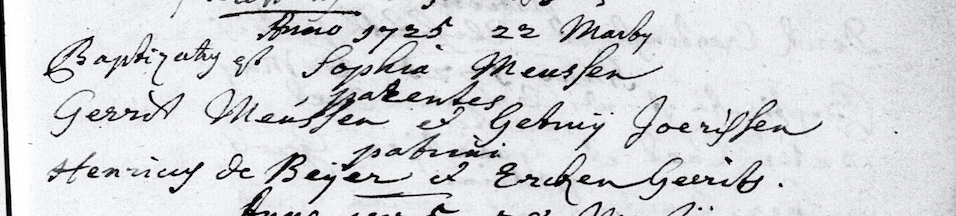 Anno 1725 22 Marby
Baptizatus est Sophia Meussen
parentes
Gerrit Meussen et Gebruij Joerissen
patrini
Henricus de Beijer et Ercken Gerrits.
Anno